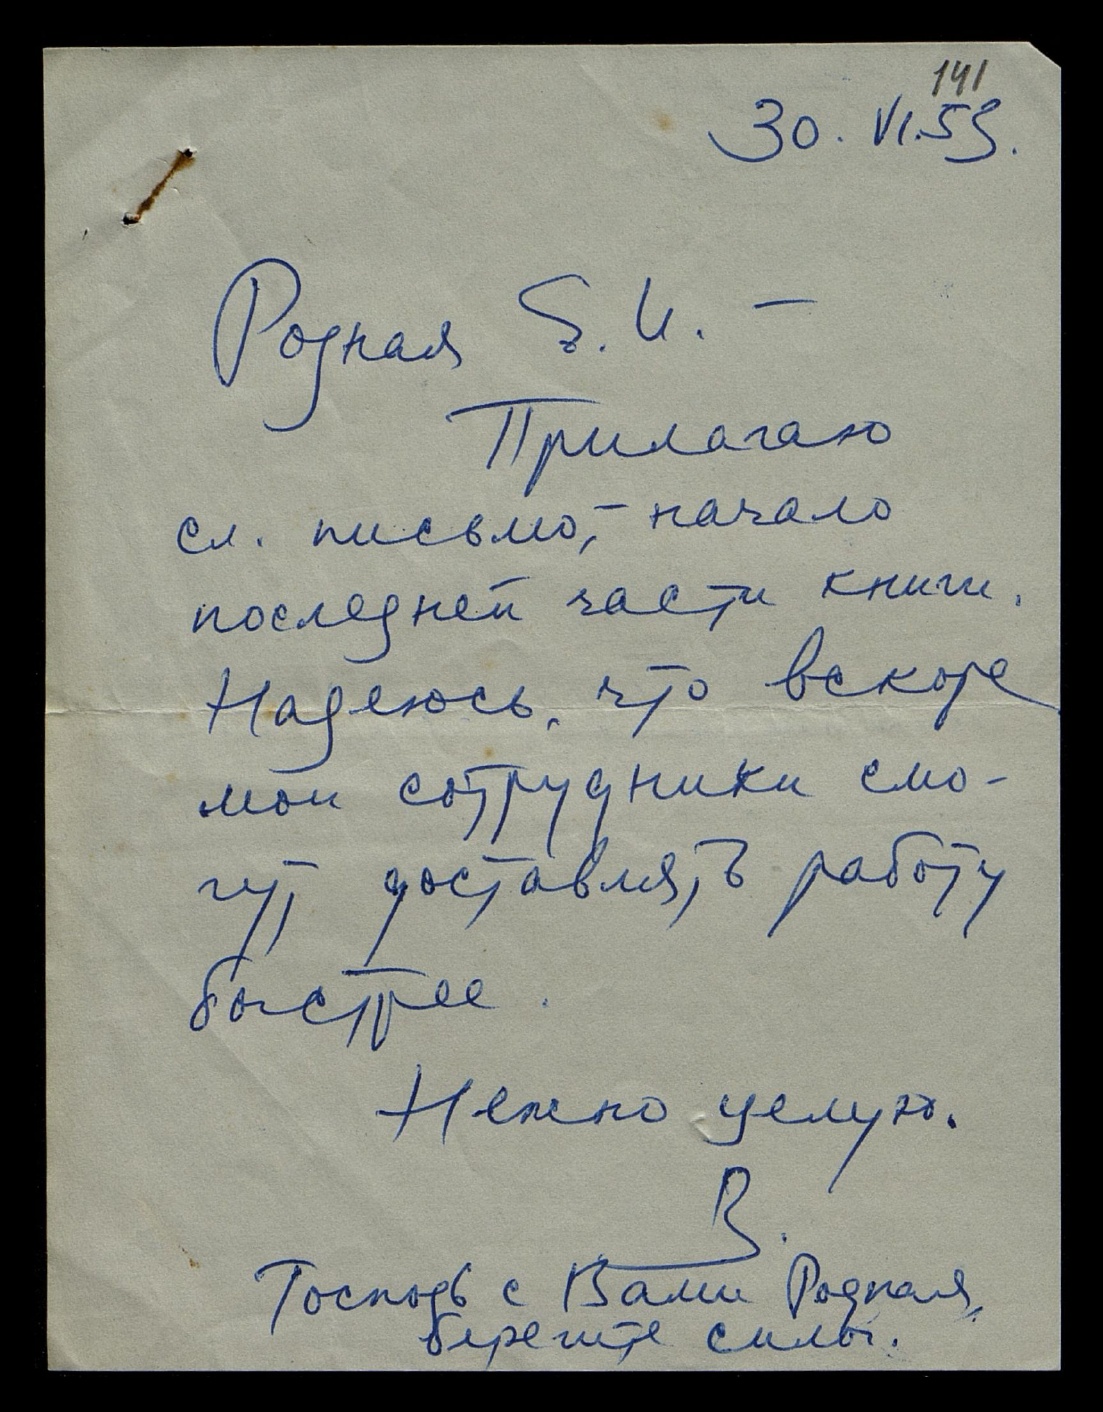 141
30. VI.53.
Родная Е. И. –
Прилагаю
сл. письмо, – начало
последней части книги.
Надеюсь, что вскоре
мои сотрудники смо-
гут доставлять работу
быстрее.
Нежно целую.
В.
Господь с Вами Родная,
берегите силы.